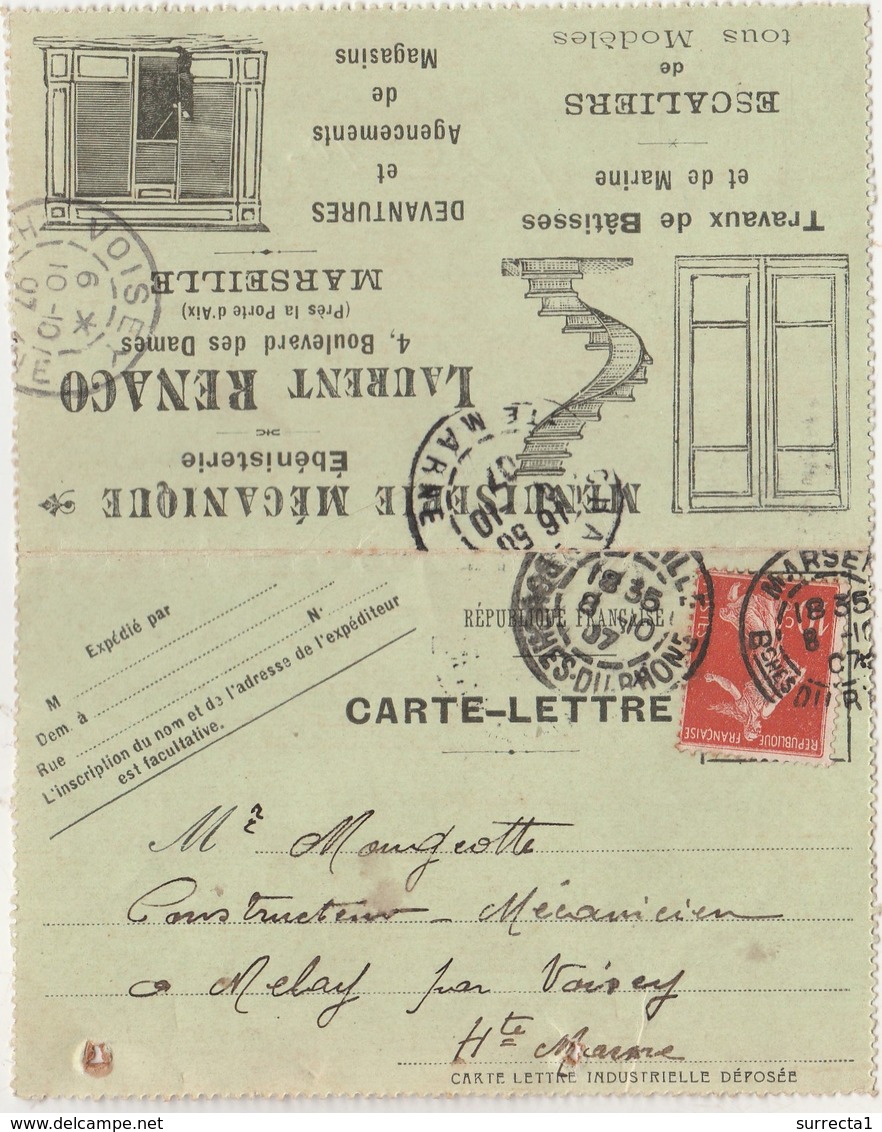 MENUISERIE MÉCANIQUE
Ébénisterie
LAURENT RENACO
4, Boulevard des Dames
(Près la Porte d'Aix)
MARSEILLE
DEVANTURES
et
Agencements
de
Magasins
Travaux de Bâtisses
et de Marine
ESCALIERS
de
tous Modèles
VOISEY
6
10-10
07
HTE MARNE
16 50
10
07
Expédié par
M
N°
Dem. à
Rue
L'inscription du nom et de l'adresse de l'expéditeur
est facultative.
RÉPUBLIQUE FRANÇAISE
CARTE-LETTRE
18 35
8 10
07
BCHES-DU-RHONE
MARSEILLE
18 35
8 -10
07
BCHES-DU-RHONE
REPUBLIQUE
FRANÇAISE
Mr Mougeotte
Constructeur - Mécanicien
à Melay par Voisey
Hte Marne
CARTE LETTRE INDUSTRIELLE DÉPOSÉE
delcampe.net
surrecta1